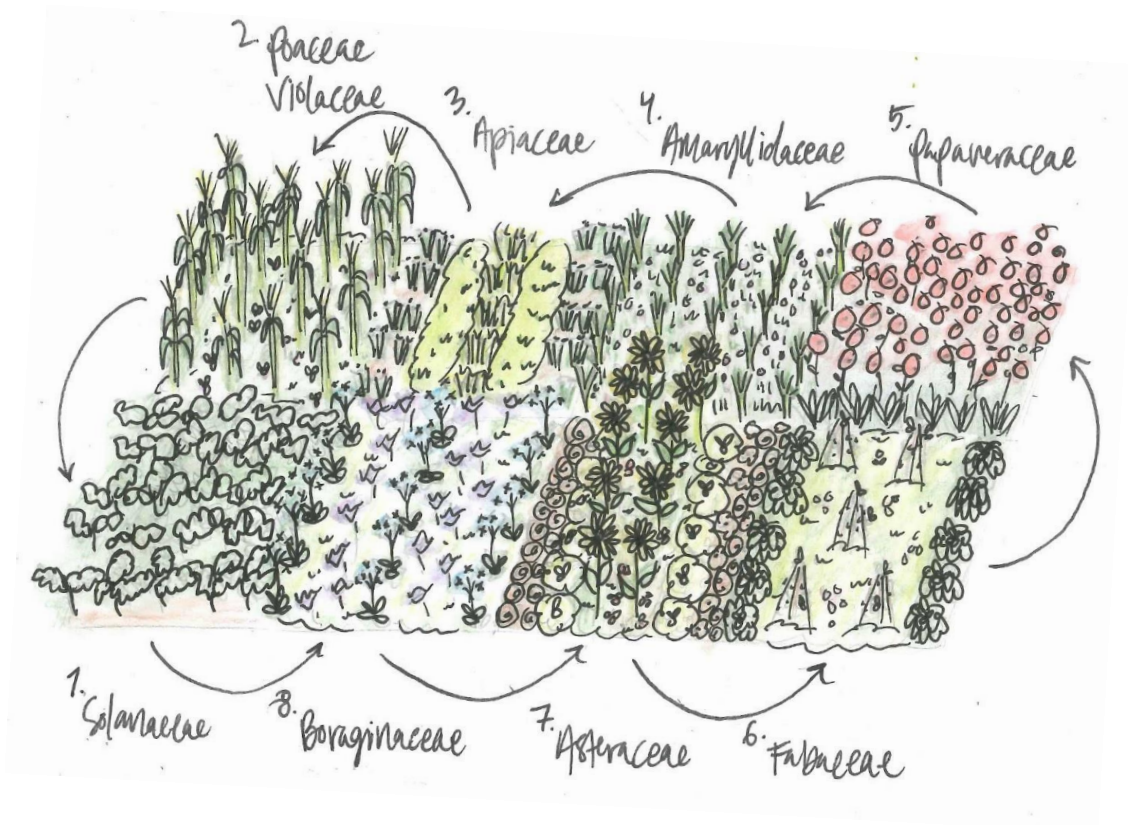 2. Poaceae
Violaceae
3. Apiaceae
4. Amaryllidaceae
5. Papaveraceae
1. Solanaceae
8. Boraginaceae
7. Asteraceae
6. Fabaceae